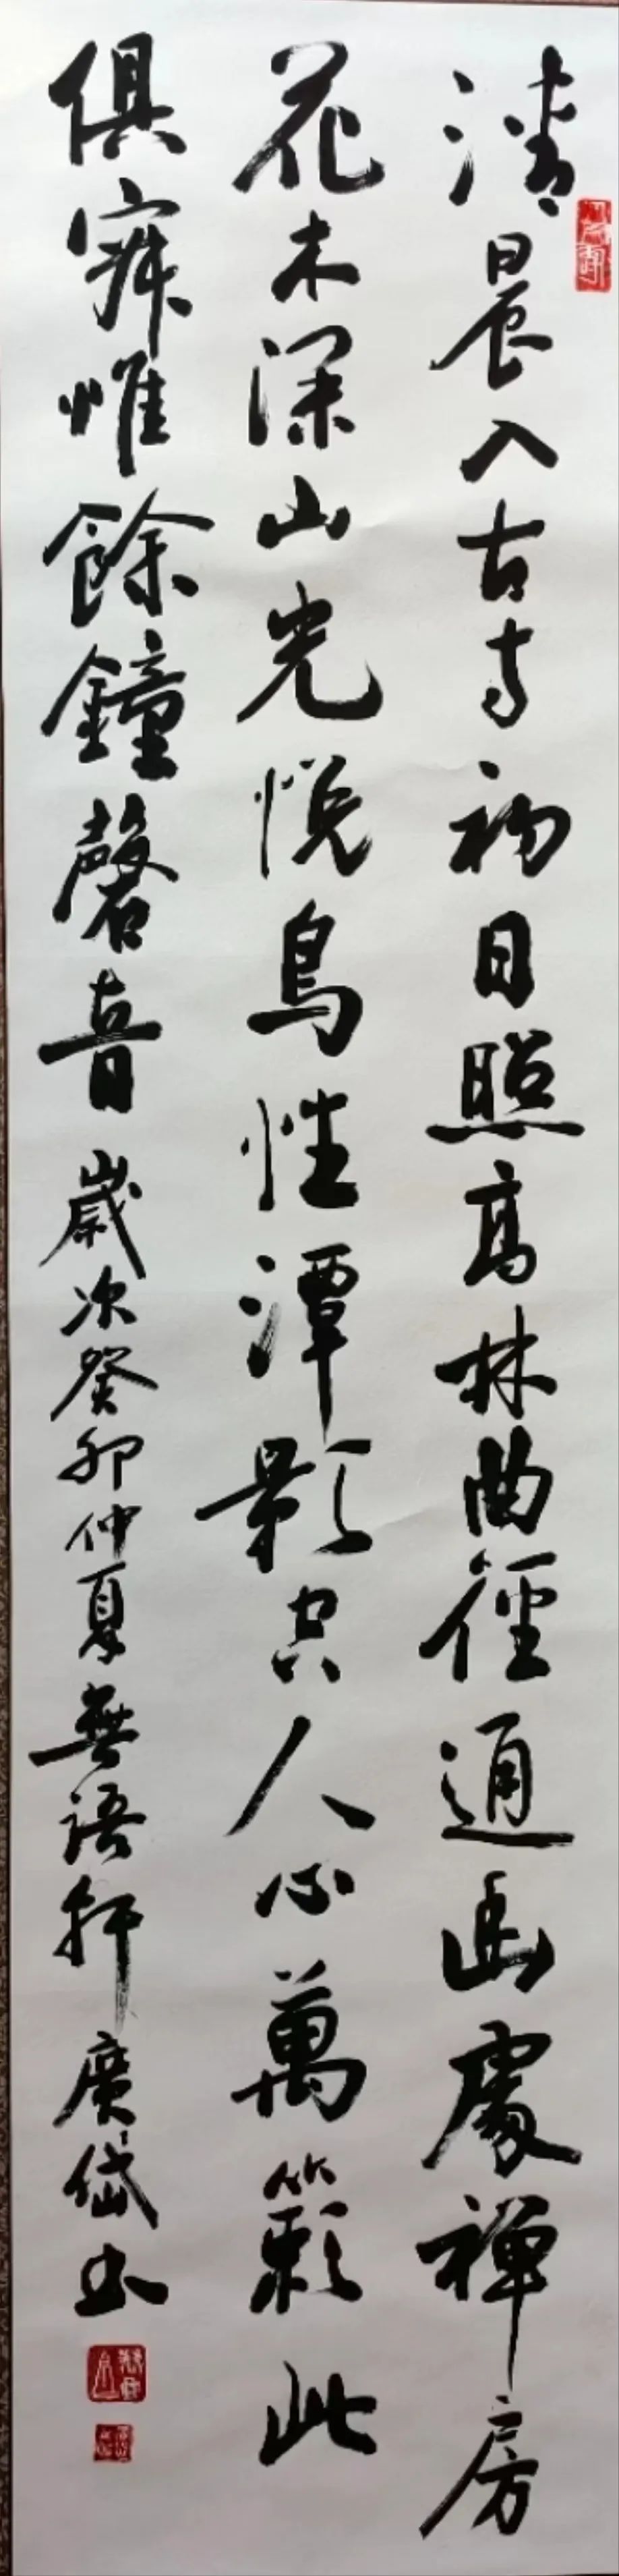 清晨入古寺初日照高林曲徑通幽處禅房
花木深山光悦鳥性潭影空人心萬籟此
俱寂惟餘鐘磬音 歲次癸卯仲夏無語軒廣岱书